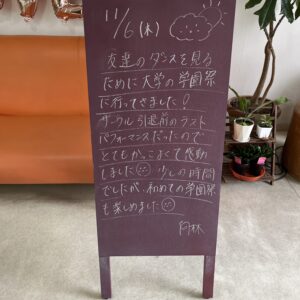 11/6(木)
友達のダンスを見る
ために大学の学園祭
に行ってきました!
サークル引退前のラスト
パフォーマンスだったので
とてもかっこよくて感動
しました 少しの時間
でしたが、初めての学園祭
も楽しめました